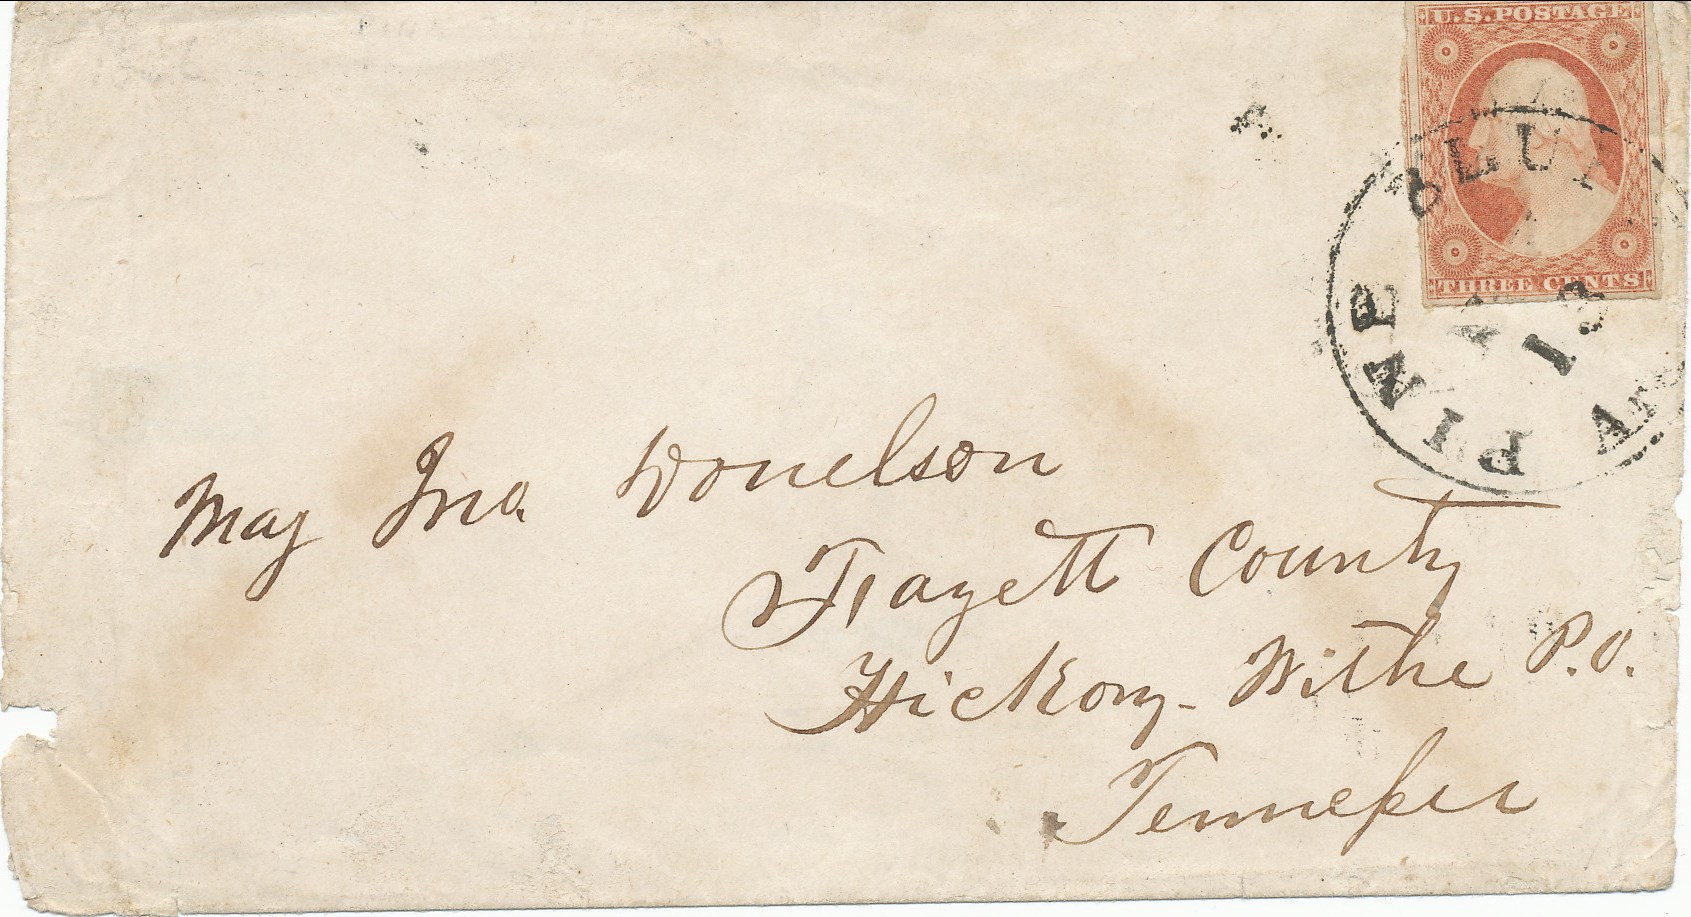 U.S. POSTAGE
THREE CENTS
PINE BLUF
13
Maj Jno. Donelson
Fayett County
Hickory-Withe P.O.
Tenneſsee